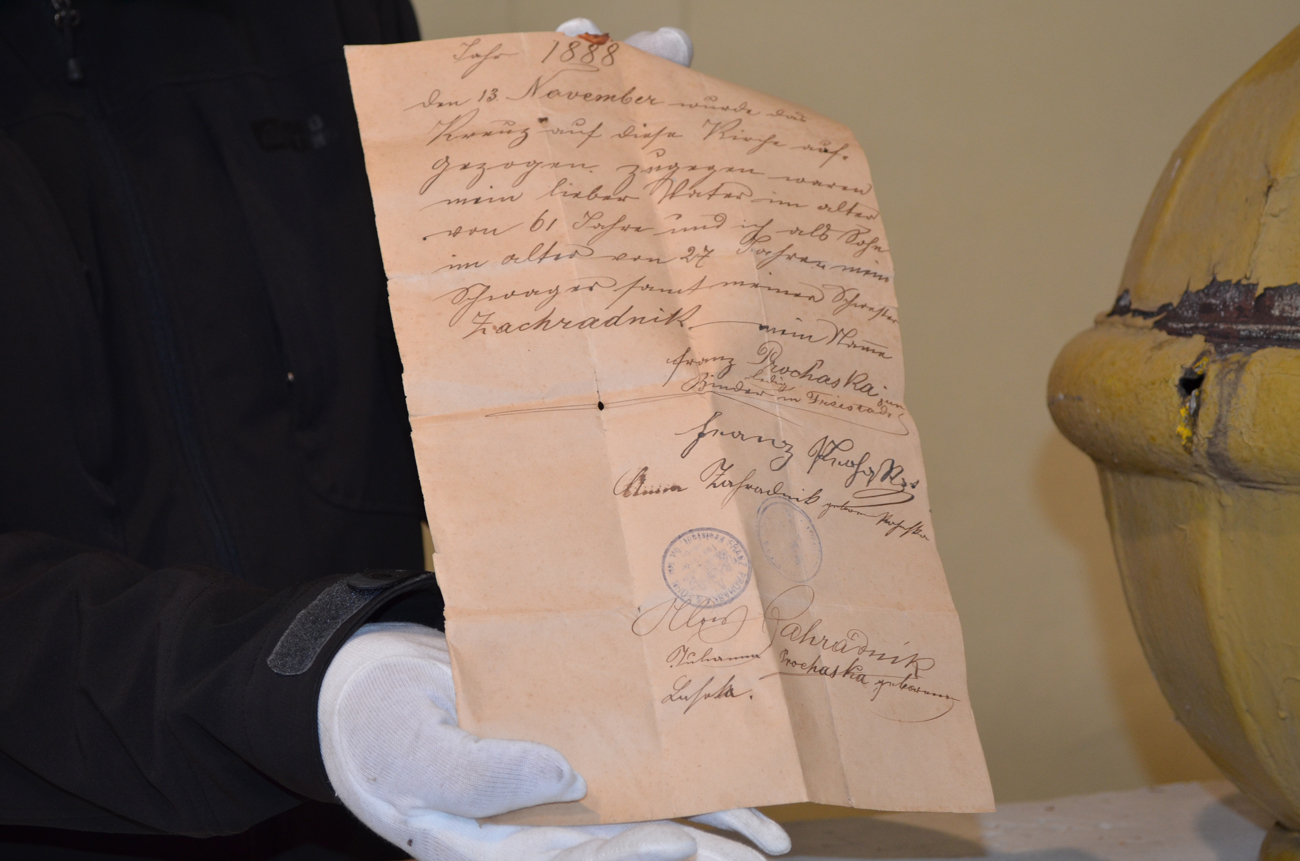 Jahr 1888
den 13. November wurde das
Kreuz auf diese Kirche auf-
gezogen. zugegen waren
mein lieber Vater im alter
von 61 Jahre und ich als Sohn
im alter von 27 Jahren mein
Schwager samt meiner Schwester
Zachradnik mein Name
franz Prochaska
ledig
Binder in
Franz Prohaska
Anna Zahradnik geboren Prohaska
Alois Zahradnik
Juhanna Prochaska geborenne